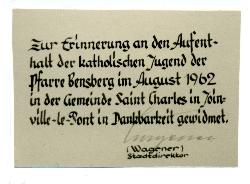 Zur Erinnerung an den Aufent-
halt der katholischen Jugend der
Pfarre Bensberg im August 1962
in der Gemeinde Saint Charles in Join-
ville-le-Pont in Dankbarkeit gewidmet.
(Wagener)
Stadtdirektor